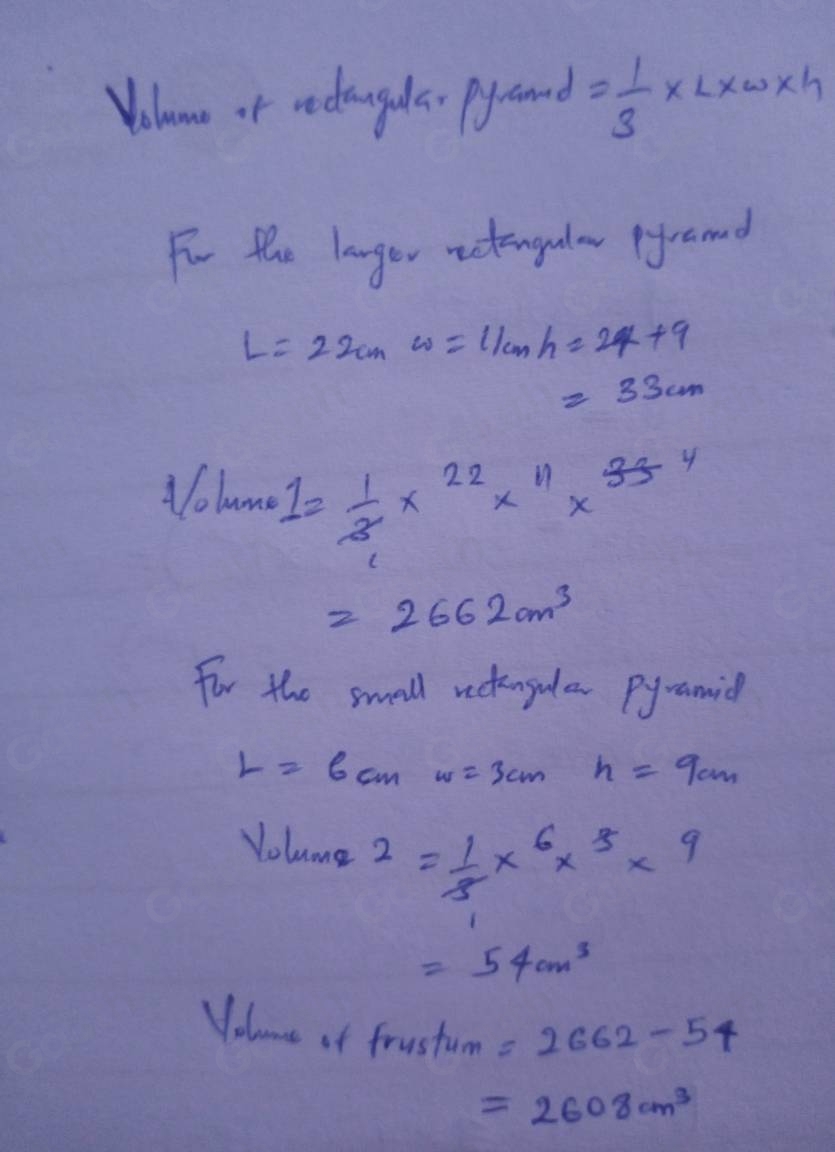 Volume of rectangular pyramid = 1/3 × L × w × h
For the larger rectangular pyramid
L = 22cm w = 11cm h = 24 + 9
= 33cm
Volume 1 = 1/3 × 22 × 11 × 33 11
1
= 2662cm³
For the small rectangular pyramid
L = 6cm w = 3cm h = 9cm
Volume 2 = 1/3 × 6 × 3 × 9
1
= 54cm³
Volume of frustum = 2662 - 54
= 2608cm³